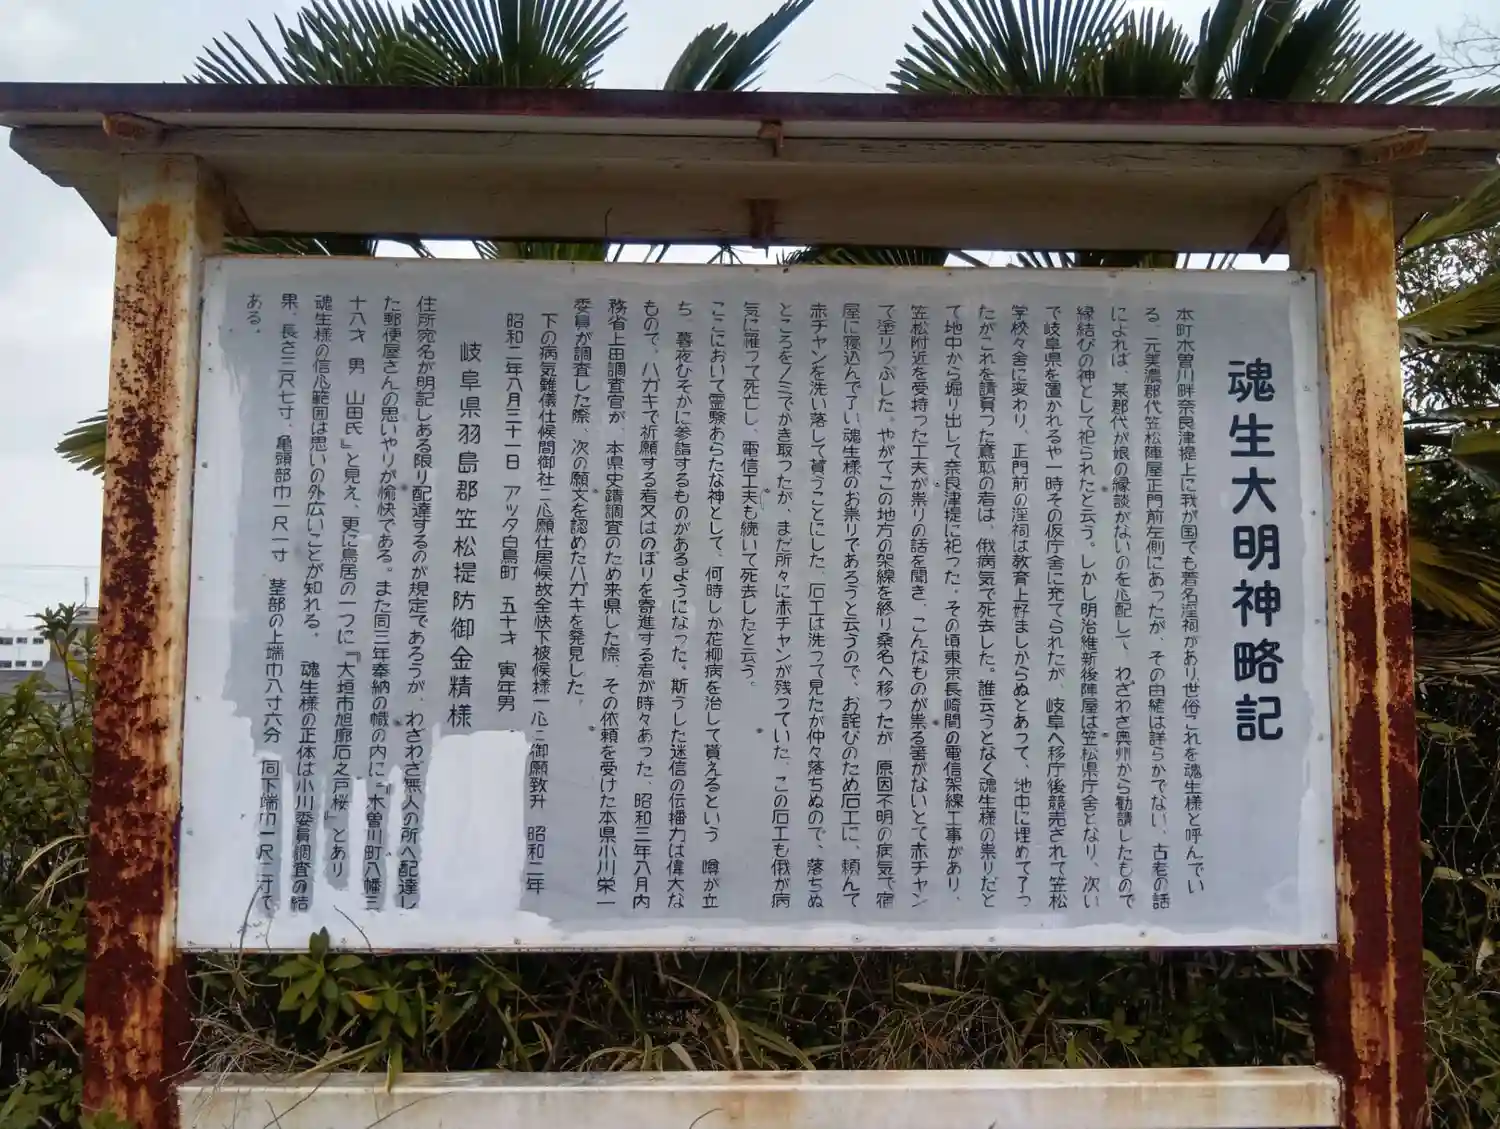 魂生大明神略記
本町木曽川畔奈良津堤上に我が国でも著名淫祠があり世俗これを魂生様と呼んでい
る、元美濃郡代笠松陣屋正門前左側にあったが、その由緒は詳らかでない、古老の話
によれば、某郡代が娘の縁談がないのを心配して、わざわざ奥州から勧請したもので
縁結びの神として祀られたと云う。しかし明治維新後陣屋は笠松県庁舎となり、次い
で岐阜県を置かれるや一時その仮庁舎に充てられたが、岐阜へ移庁後競売されて笠松
学校々舎に変わり、正門前の淫祠は教育上好ましからぬとあって、地中に埋めて了っ
たがこれを請負った鳶職の者は、俄病気で死去した。誰云うとなく魂生様の祟りだと
て地中から堀り出して奈良津堤に祀った。その頃東京長崎間の電信架線工事があり、
笠松附近を受持った工夫が祟りの話を聞き、こんなものが祟る筈がないとて赤チャン
で塗りつぶした。やがてこの地方の架線を終り桑名へ移ったが、原因不明の病気で宿
屋に寝込んで了い魂生様のお祟りであろうと云うので、お詫びのため石工に、頼んて
赤チャンを洗い落して貰うことにした、石工は洗って見たが仲々落ちぬので、落ちぬ
ところをノミでかき取ったが、まだ所々に赤チャンが残っていた、この石工も俄が病
気に罹って死亡し、電信工夫も続いて死去したと云う。
ここにおいて霊験あらたな神として、何時しか花柳病を治して貰えるという 噂が立
ち、暮夜ひそかに参詣するものがあるようになった、斯うした迷信の伝播力は偉大な
もので、ハガキで祈願する者又はのぼりを寄進する者が時々あった、昭和三年八月内
務省上田調査官が、本県史蹟調査のため来県した際、その依頼を受けた本県小川栄一
委員が調査した際、次の願文を認めたハガキを発見した、
下の病気難儀仕候間御社ニ心願仕居候故全快下被候様一心ニ御願致升 昭和二年
昭和二年八月三十一日 アッタ白鳥町 五十才 寅年男
岐阜県羽島郡笠松堤防御金精様
住所宛名が明記しある限り配達するのが規定であろうが、わざわざ無人の所へ配達し
た郵便屋さんの思いやりが愉快である。また同三年奉納の幟の内に『木曽川町八幡三
十八才 男 山田氏』と見え、更に鳥居の一つに『大垣市旭廓石之戸桜』とあり
魂生様の信心範囲は思いの外広いことが知れる。 魂生様の正体は小川委員調査の結
果、長さ三尺七寸、亀頭部巾一尺一寸 茎部の上端巾八寸六分 同下端巾一尺二寸で
ある。